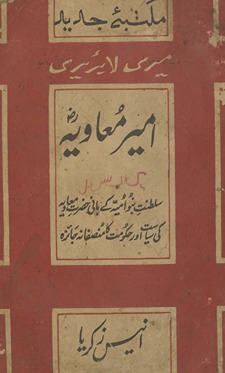 مکتبۂ جدید
میری لائبریری
امیر معاویہؓ
سلطنتِ بنو امیہ کے بانی حضرت معاویہ
کی سیاست اور حکومت کا منصفانہ جائزہ
انیس زکریا